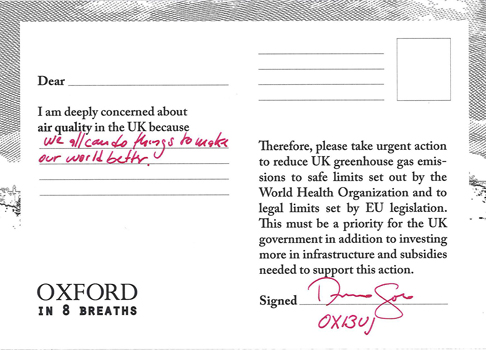 Dear
I am deeply concerned about
air quality in the UK because
we all can do things to make
our world better.
OXFORD
IN 8 BREATHS
Therefore, please take urgent action
to reduce UK greenhouse gas emis-
sions to safe limits set out by the
World Health Organization and to
legal limits set by EU legislation.
This must be a priority for the UK
government in addition to investing
more in infrastructure and subsidies
needed to support this action.
Signed